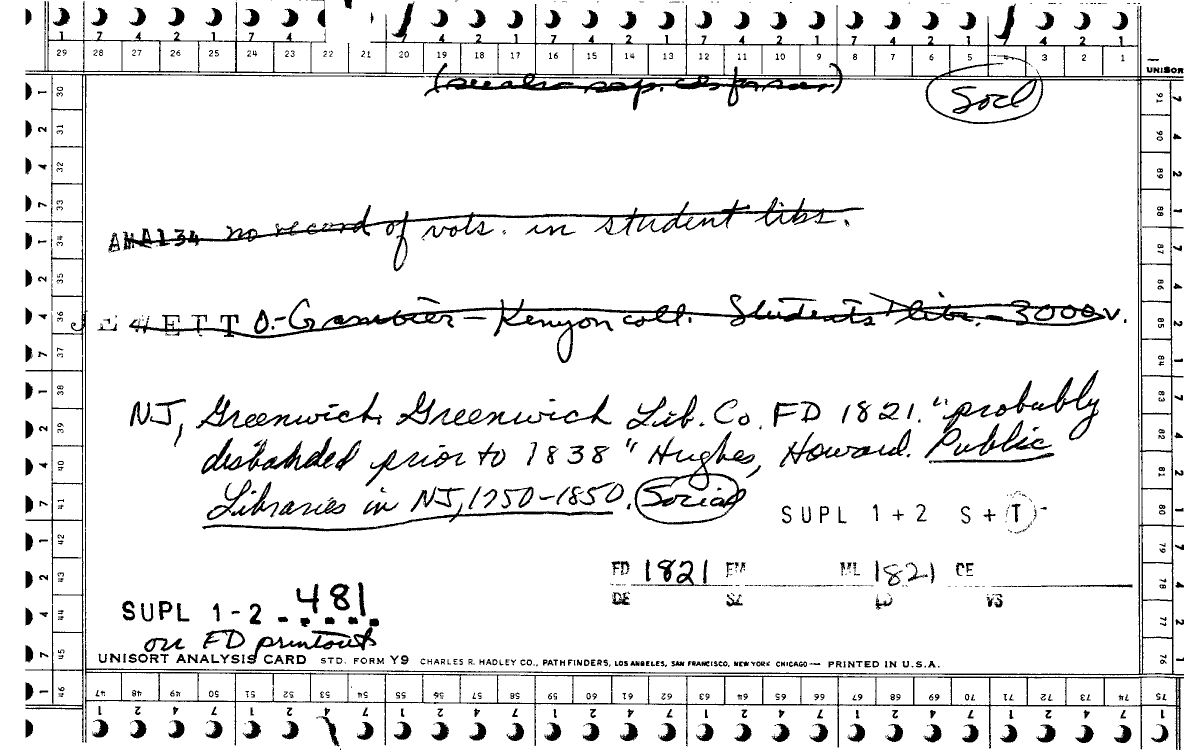 7 4 2 1 7 4 2 1 7 4 2 1 7 4 2 1 7 4 2 1
29 28 27 26 25 24 23 22 21 20 19 18 17 16 15 14 13 12 11 10 9 8 7 6 5 4 3 2 1
UNISOR
(see also sup. cds for soc.)
Socl
AMA134 no record of vols. in student libs.
JEWETT O.-Gambier-Kenyon coll. Students' libr.-3000v.
NJ, Greenwich. Greenwich Lib. Co. FD 1821. "probably
disbanded prior to 1838" Hughes, Howard. Public
Libraries in NJ, 1750-1850. Social
SUPL 1+2 S+T-
FD 1821 EM ML 1821 CE
DE SZ LD VS
SUPL 1-2 481
on FD printout
UNISORT ANALYSIS CARD STD. FORM Y9 CHARLES R. HADLEY CO., PATHFINDERS, LOS ANGELES, SAN FRANCISCO, NEW YORK CHICAGO — PRINTED IN U.S.A.
47 48 49 50 51 52 53 54 55 56 57 58 59 60 61 62 63 64 65 66 67 68 69 70 71 72 73 74 75